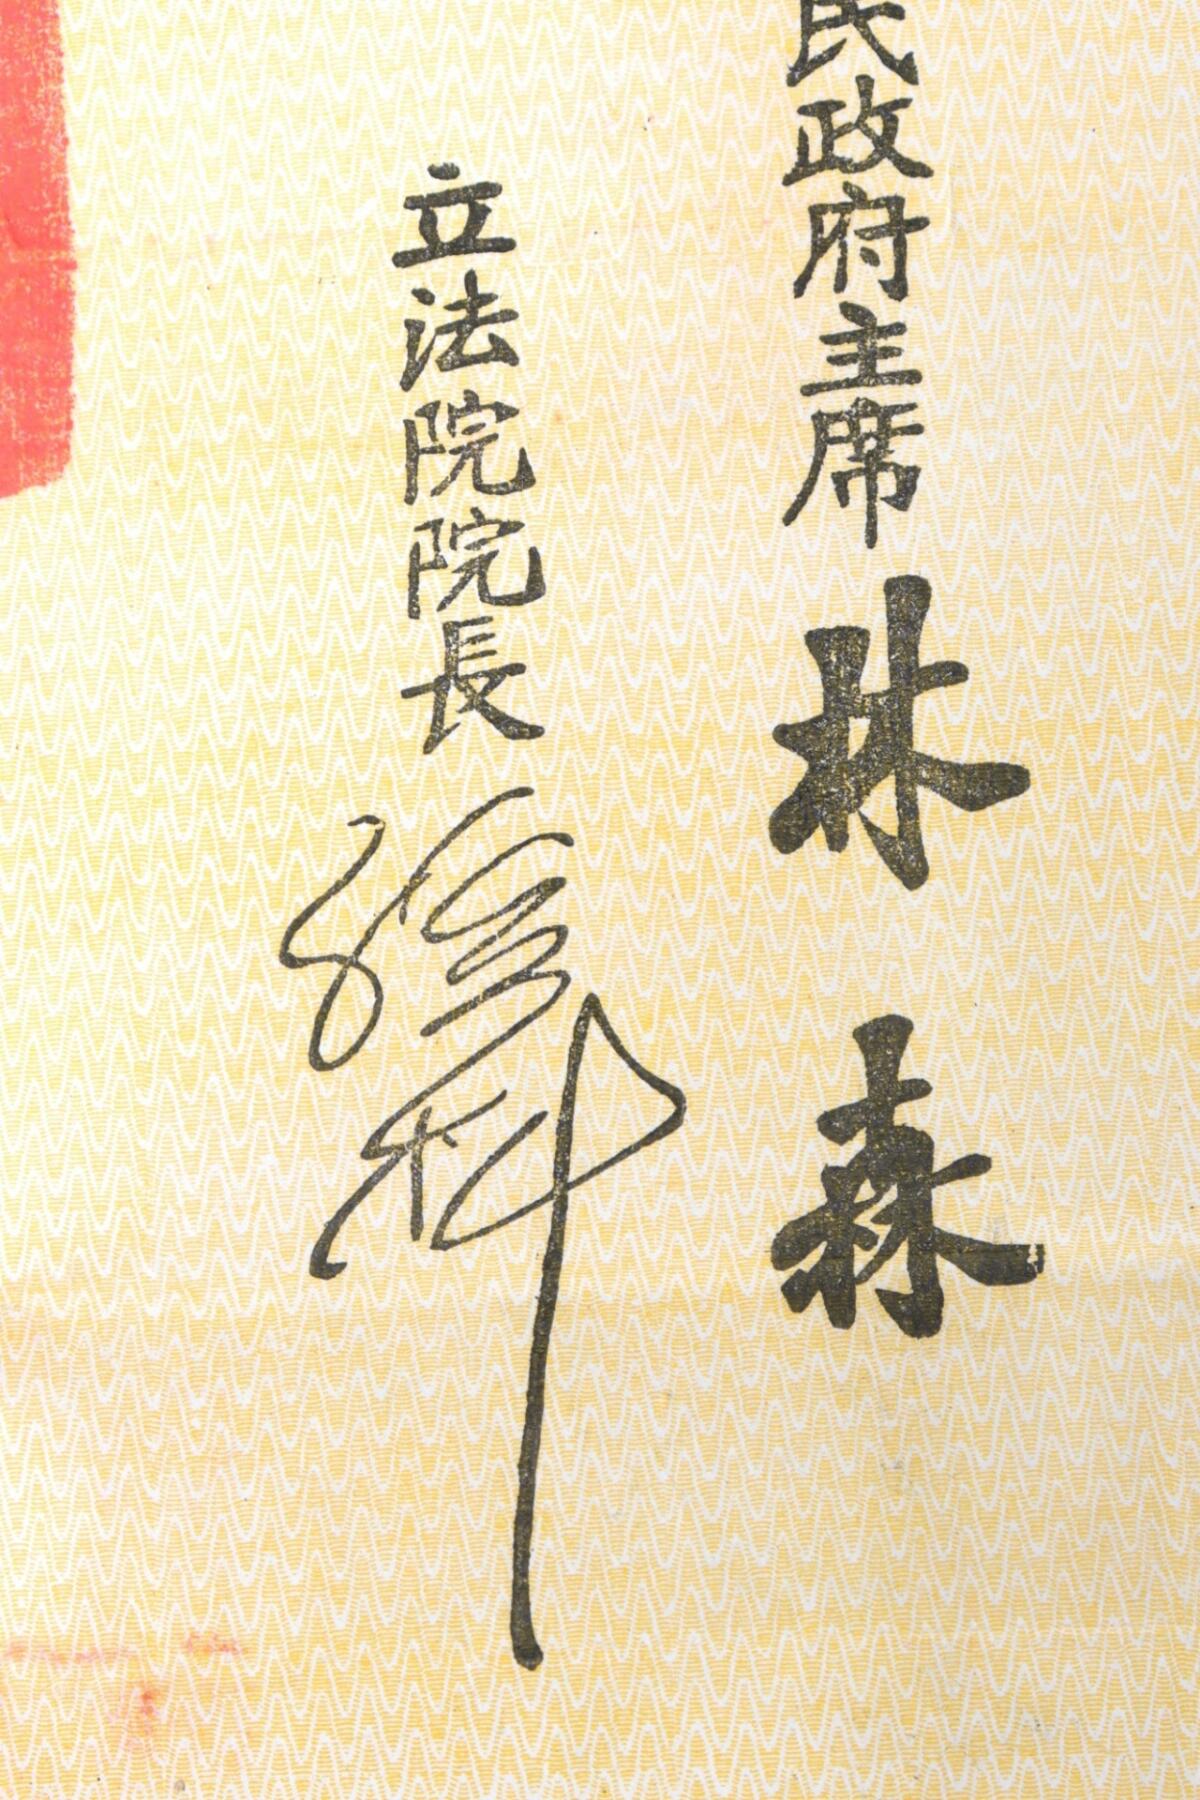 民政府主席 林森
立法院院長 孫科